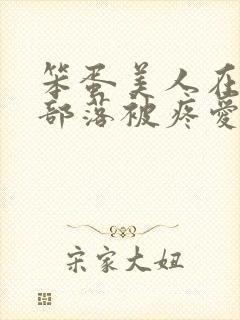 笨蛋美人在
部落被疼爱
宋家大妞